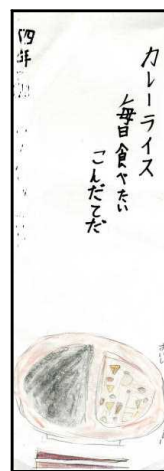 カレーライス
毎日食べたい
こんだてだ
四年